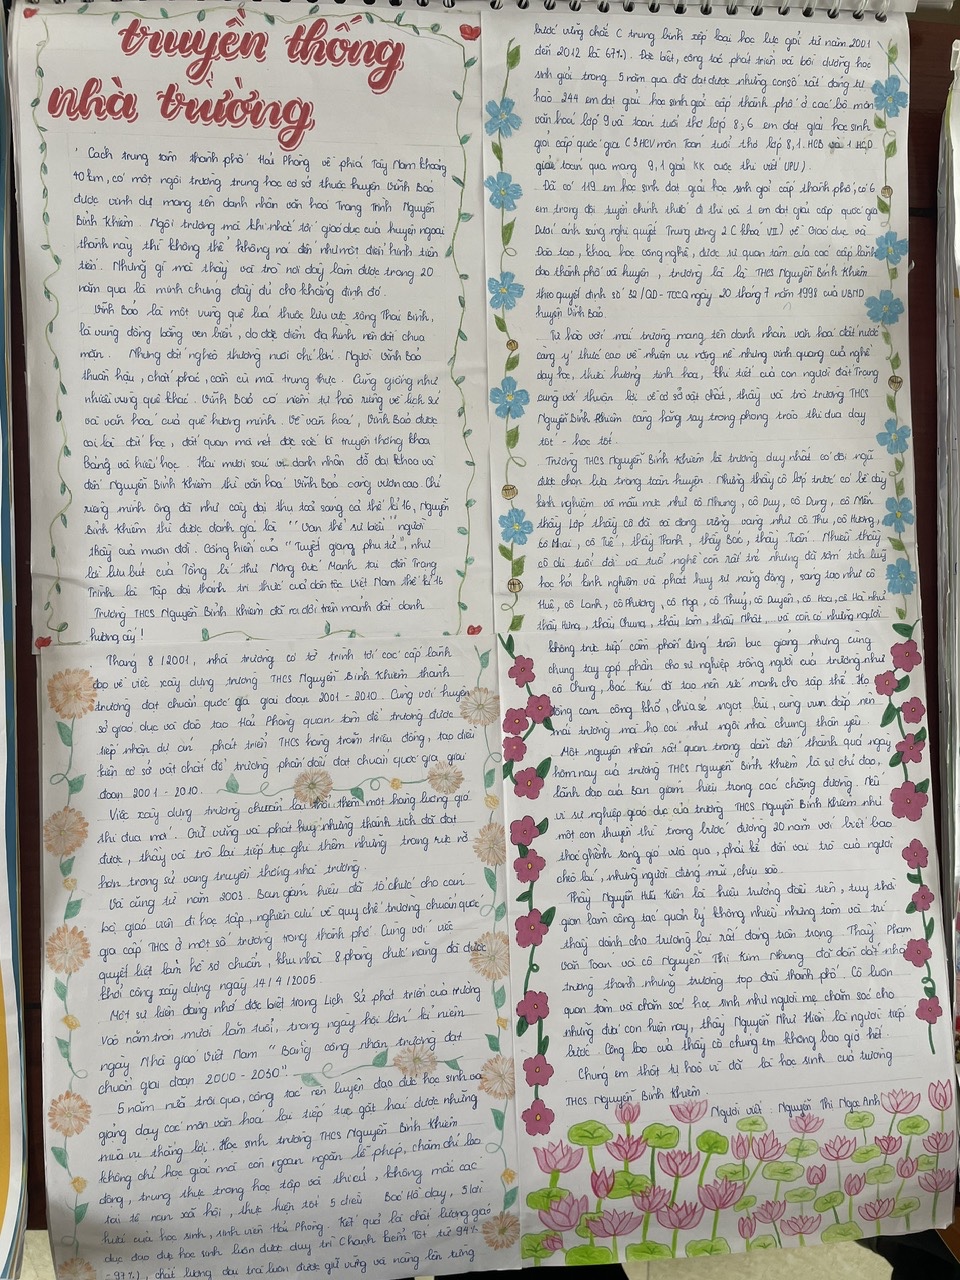 truyền thống
nhà trường
Cách trung tâm thành phố Hải Phòng về phía Tây Nam khoảng
40 km, có một ngôi trường trung học cơ sở thuộc huyện Vĩnh Bảo
được vinh dự mang tên danh nhân văn hoá Trạng Trình Nguyễn
Bỉnh Khiêm. Ngôi trường mà khi nhắc tới giáo dục của huyện ngoại
thành này thì không thể không nói đến như một điển hình tiên
tiến. Những gì mà thầy và trò nơi đây làm được trong 20
năm qua là minh chứng đầy đủ cho khẳng định đó.
Vĩnh Bảo là một vùng quê lúa thuộc lưu vực sông Thái Bình,
là vùng đồng bằng ven biển, do đặc điểm địa hình nên đất chua
mặn. Nhưng đất nghèo thường nuôi chí lớn. Người Vĩnh Bảo
thuần hậu, chất phác, cần cù mà trung thực. Cũng giống như
nhiều vùng quê khác. Vĩnh Bảo có niềm tự hào riêng về lịch sử
và văn hoá của quê hương mình. Về văn hoá, Vĩnh Bảo được
coi là đất học, đất quan mà nét đặc sắc là truyền thống khoa
bảng và hiếu học. Hai mươi sáu vị danh nhân đỗ đại khoa và
đến Nguyễn Bỉnh Khiêm thì văn hoá Vĩnh Bảo càng vươn cao Chỉ
riêng mình ông đã như cây đại thụ toả sáng cả thế kỉ 16, Nguyễn
Bỉnh Khiêm thì được đánh giá là "Vạn thế sư biểu" người
thầy của muôn đời. Cống hiến của "Tuyết giang phu tử", như
lời lưu bút của Tổng bí thư Nông Đức Mạnh tại đền Trạng
Trình là Tập đại thành tri thức của dân tộc Việt Nam thế kỉ 16
Trường THCS Nguyễn Bỉnh Khiêm đã ra đời trên mảnh đất danh
hương ấy!
Tháng 8/2001, nhà trường có tờ trình tới các cấp lãnh
đạo về việc xây dựng trường THCS Nguyễn Bỉnh Khiêm thành
trường đạt chuẩn quốc gia giai đoạn 2001 - 2010. Cùng với huyện
sở giáo dục và đào tạo Hải Phòng quan tâm để trường được
tiếp nhận dự án phát triển THCS hàng trăm triệu đồng, tạo điều
kiện cơ sở vật chất để trường phấn đấu đạt chuẩn quốc gia giai
đoạn 2001 - 2010.
Việc xây dựng trường chuẩn lại thổi thêm một luồng gió
thi đua mới. Giữ vững và phát huy những thành tích đã đạt
được, thầy và trò lại tiếp tục ghi thêm những trang rực rỡ
hơn trong sử vàng truyền thống nhà trường.
Và cũng từ năm 2003. Ban giám hiệu đã tổ chức cho cán
bộ, giáo viên đi học tập, nghiên cứu về quy chế trường chuẩn quốc
gia cấp THCS ở một số trường trong thành phố Cùng với việc
quyết liệt làm hồ sơ chuẩn, khu nhà 8 phòng chức năng đã được
khởi công xây dựng ngày 14/4/2005.
Một sự kiện đáng nhớ đặc biệt trong Lịch Sử phát triển của trường
vào năm tròn mười lăm tuổi, trong ngày hội lớn kỉ niệm
ngày Nhà giáo Việt Nam "Bằng công nhận trường đạt
chuẩn giai đoạn 2000 - 2030".
5 năm nữa trôi qua, công tác rèn luyện đạo đức học sinh và
giảng dạy các môn văn hoá lại tiếp tục gặt hái được những
mùa vụ thắng lợi. Học sinh trường THCS Nguyễn Bỉnh Khiêm
không chỉ học giỏi mà còn ngoan ngoãn lễ phép, chăm chỉ lao
động, trung thực trong học tập và thi cử, không mắc các
tai tệ nạn xã hội, thực hiện tốt 5 điều Bác Hồ dạy, 5 lời
hứa của học sinh, sinh viên Hải Phòng. Kết quả là chất lượng giáo
dục đạo đức học sinh luôn được duy trì C hạnh kiểm Tốt từ 94%
- 97%), chất lượng đại trà luôn được giữ vững và nâng lên từng
bước vững chắc C trung bình xếp loại học lực giỏi từ năm 2001
đến 2012 là 67%). Đặc biệt, công tác phát triển và bồi dưỡng học
sinh giỏi trong 5 năm qua đã đạt được những con số rất đáng tự
hào 244 em đạt giải học sinh giỏi cấp thành phố ở các bộ môn
văn hoá lớp 9 và toán tuổi thơ lớp 8, 6 em đạt giải học sinh
giỏi cấp quốc gia C 3 HCV môn Toán tuổi thơ lớp 8, 1 HCB và 1 HCĐ
giải toán qua mạng 9, 1 giải KK cuộc thi viết UPU).
Đã có 119 em học sinh đạt giải học sinh giỏi cấp thành phố, có 6
em trong đội tuyển chính thức đi thi và 1 em đạt giải cấp quốc gia
Dưới ánh sáng nghị quyết Trung ương 2 C khoá VII) về Giáo dục và
Đào tạo, khoa học công nghệ, được sự quan tâm của các cấp lãnh
đạo thành phố và huyện, trường là là THCS Nguyễn Bỉnh Khiêm
theo quyết định số 32/QĐ-TCCQ ngày 20 tháng 7 năm 1998 của UBND
huyện Vĩnh Bảo.
Tự hào với mái trường mang tên danh nhân văn hoá đất nước
càng ý thức cao về nhiệm vụ nặng nề nhưng vinh quang của nghề
dạy học, thừa hưởng tinh hoa, khí tiết của con người đất Trạng
cùng với thuận lợi về cơ sở vật chất, thầy và trò trường THCS
Nguyễn Bỉnh Khiêm càng hăng say trong phong trào thi đua dạy
tốt - học tốt.
Trường THCS Nguyễn Bỉnh Khiêm là trường duy nhất có đội ngũ
được chọn lựa trong toàn huyện. Những thầy cô lớp trước có bề dày
kinh nghiệm và mẫu mực như cô Nhung, cô Duy, cô Dung, cô Mến,
thầy Lớp thầy cô đã có đóng vững vàng như cô Thu, cô Hương,
cô Mai, cô Tuế, thầy Thanh, thầy Bảo, thầy Tuấn. Nhiều thầy
cô dù tuổi đời và tuổi nghề còn rất trẻ nhưng đã sớm tích luỹ
học hỏi kinh nghiệm và phát huy sự năng động, sáng tạo như cô
Huê, cô Lanh, cô Phương, cô Nga, cô Thuý, cô Duyên, cô Hoa, cô Hà như
thầy Hưng, thầy Chung, thầy Lâm, thầy Nhất, và còn có những người
không trực tiếp cầm phấn đứng trên bục giảng nhưng cũng
chung tay góp phần cho sự nghiệp trồng người của trường như
cô Chung, bác Kiu đã tạo nên sức mạnh cho tập thể. Họ
đồng cam cộng khổ, chia sẻ ngọt bùi, cùng vun đắp nên
mái trường mà họ coi như ngôi nhà chung thân yêu.
Một nguyên nhân rất quan trọng dẫn đến thành quả ngày
hôm nay của trường THCS Nguyễn Bỉnh Khiêm là sự chỉ đạo,
lãnh đạo của Ban giám hiệu trong các chặng đường. Nếu
ví sự nghiệp giáo dục của trường THCS Nguyễn Bỉnh Khiêm như
một con thuyền thì trong bước đường 20 năm với biết bao
thác ghềnh sóng gió vừa qua, phải kể đến vai trò của người
chèo lái, những người đứng mũi, chịu sào.
Thầy Nguyễn Hữu Kiên là hiệu trưởng đầu tiên, tuy thời
gian làm công tác quản lý không nhiều nhưng tâm và trí
thầy dành cho trường lại rất đáng trân trọng. Thầy Phạm
Văn Toàn và cô Nguyễn Thị Kim Nhung đã dẫn dắt nhà
trường thành những trường tốp đầu thành phố. Cô luôn
quan tâm và chăm sóc học sinh như người mẹ chăm sóc cho
những đứa con hiện nay, thầy Nguyễn Như Hiên là người tiếp
bước. Công lao của thầy cô chúng em không bao giờ hết.
Chúng em thật tự hào vì đã là học sinh của trường
THCS Nguyễn Bỉnh Khiêm.
Người viết: Nguyễn Thị Ngọc Anh